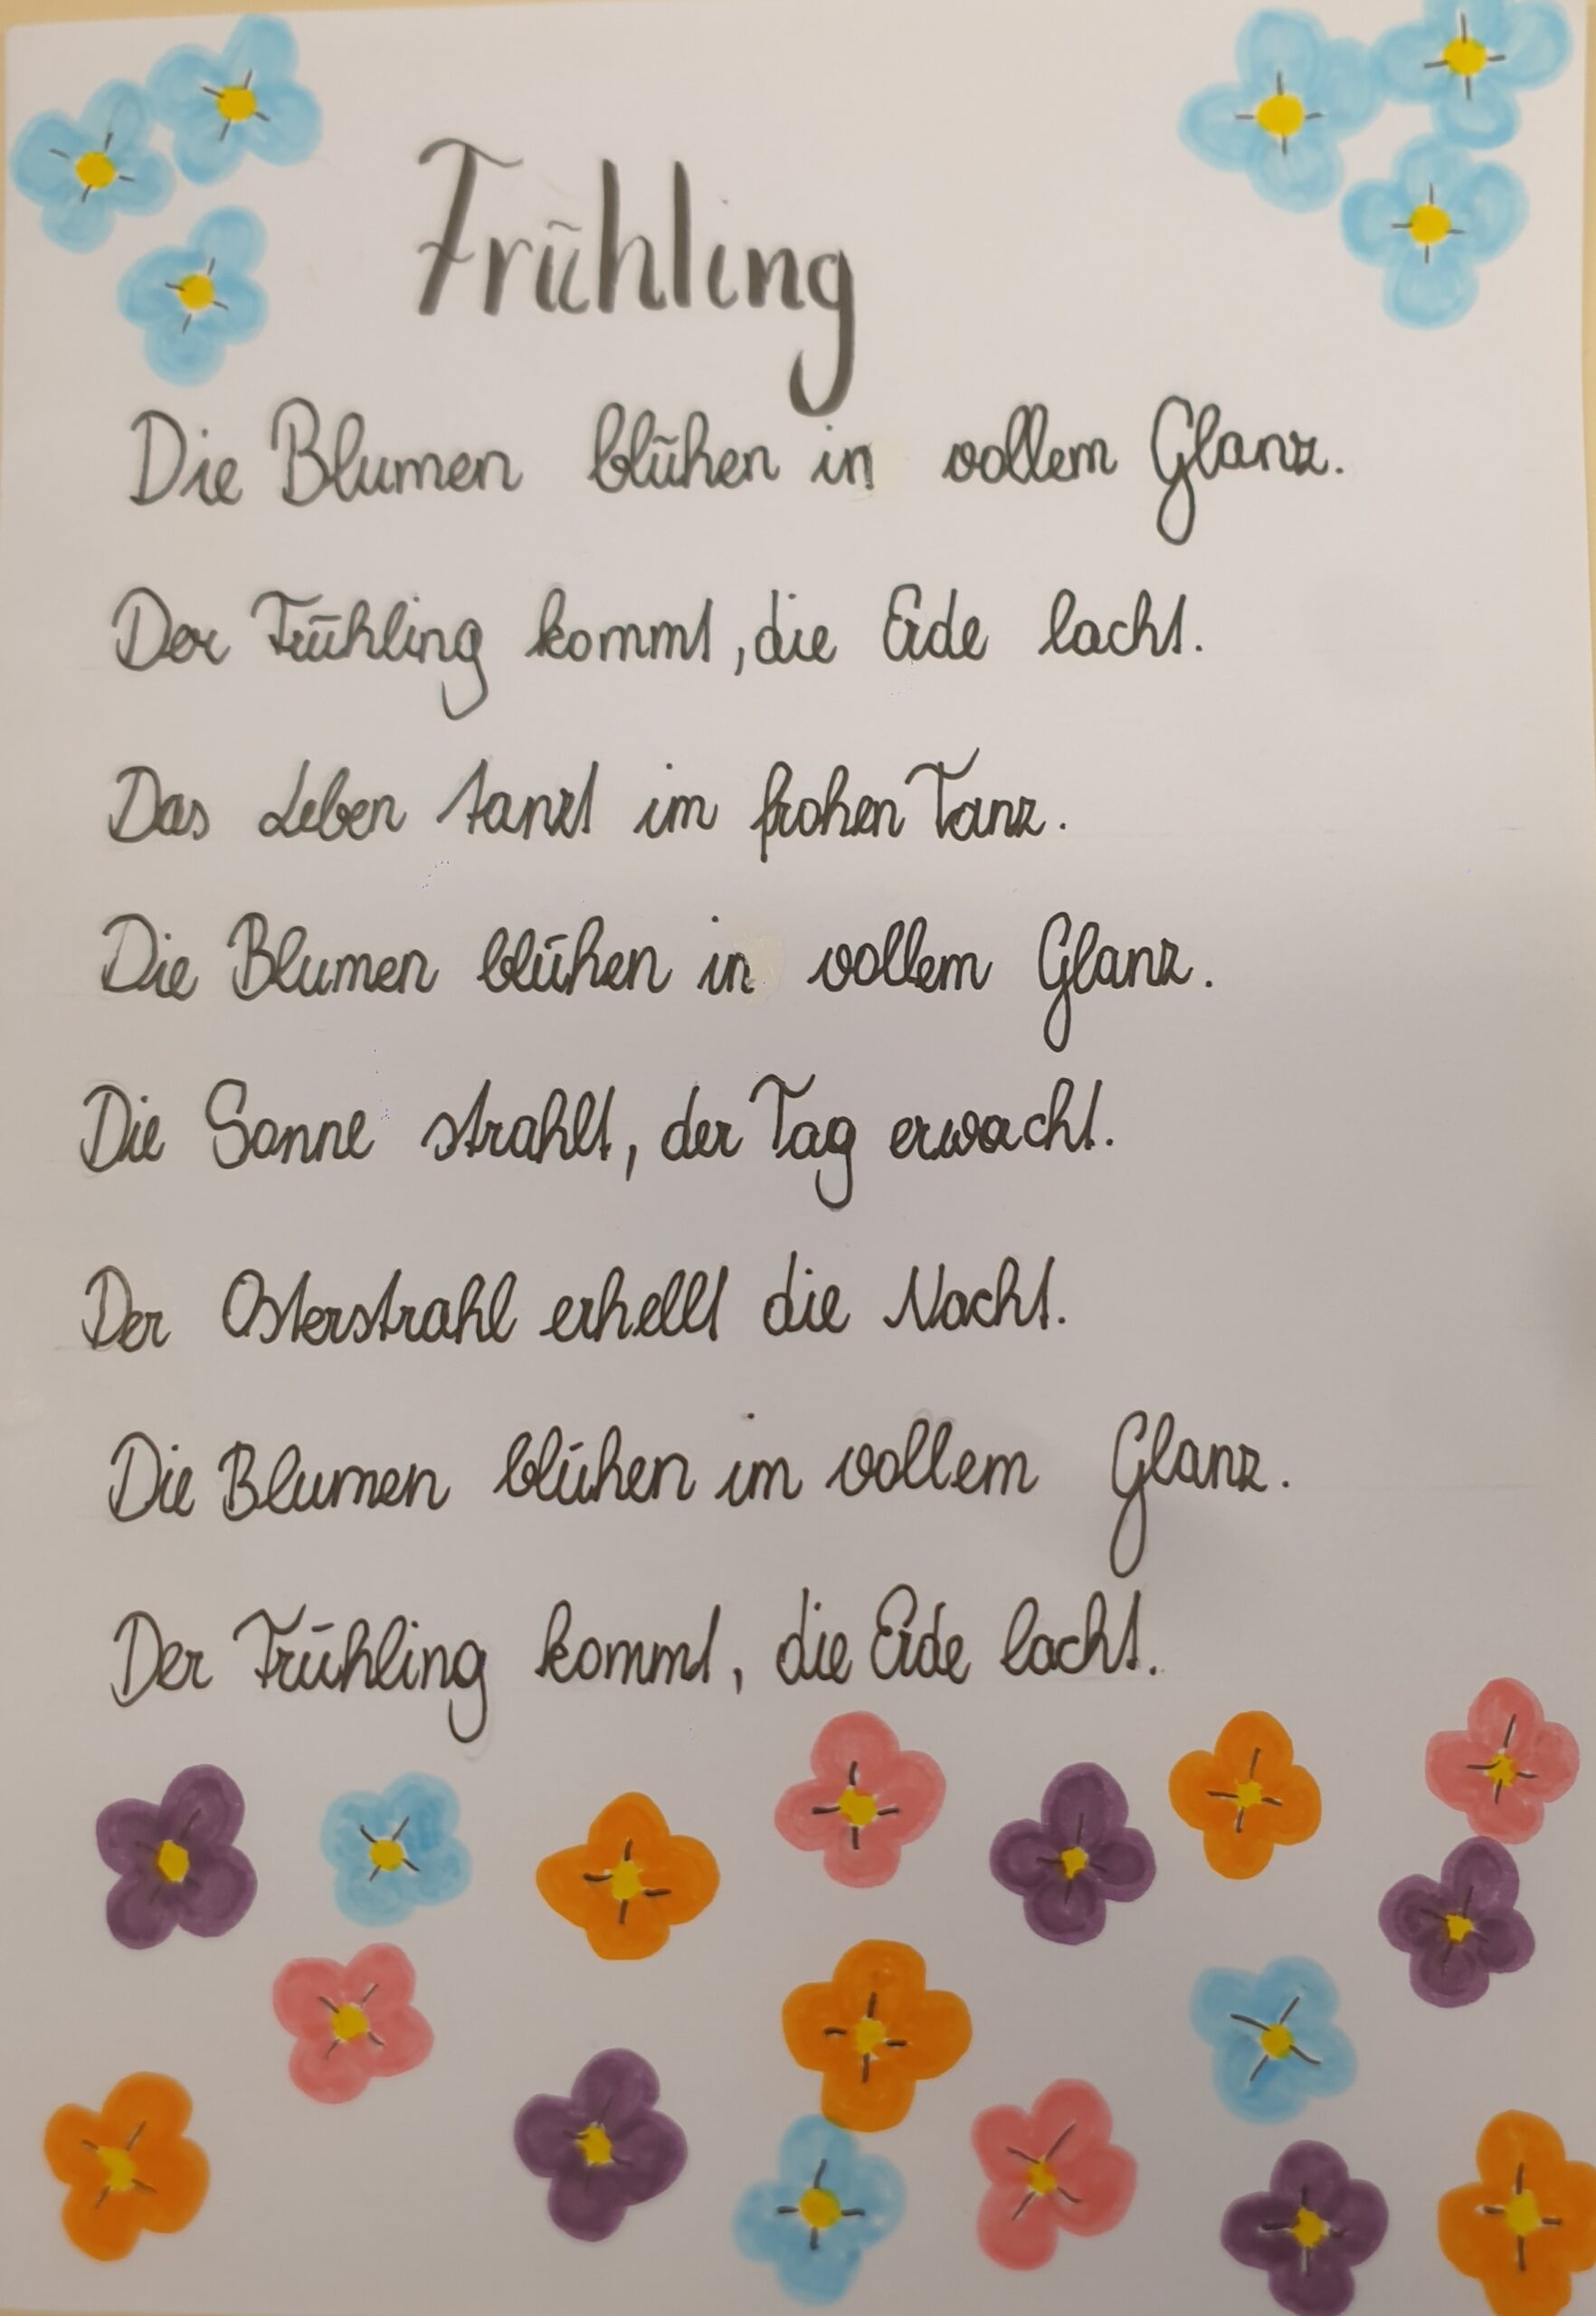 Frühling
Die Blumen blühen in vollem Glanz.
Der Frühling kommt, die Erde lacht.
Das Leben tanzt im frohen Tanz.
Die Blumen blühen in vollem Glanz.
Die Sonne strahlt, der Tag erwacht.
Der Osterstrahl erhellt die Nacht.
Die Blumen blühen im vollem Glanz.
Der Frühling kommt, die Erde lacht.